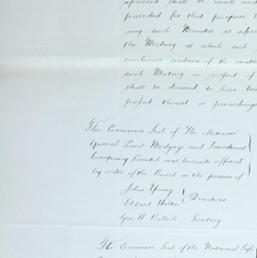 aforesaid shall be made and
provided for that purpose
ing such Minutes as afore
the Meeting at which such
evidence of the matt
such Meeting in respect of
shall be deemed to have been
passed thereat or proceedings
The Common Seal of The
General Land Mortgage and Investment
Company Limited was hereunto affixed
by order of the Board in the presence of
John Young
Directors
Geo H Secretary
The Common Seal of the National Safe